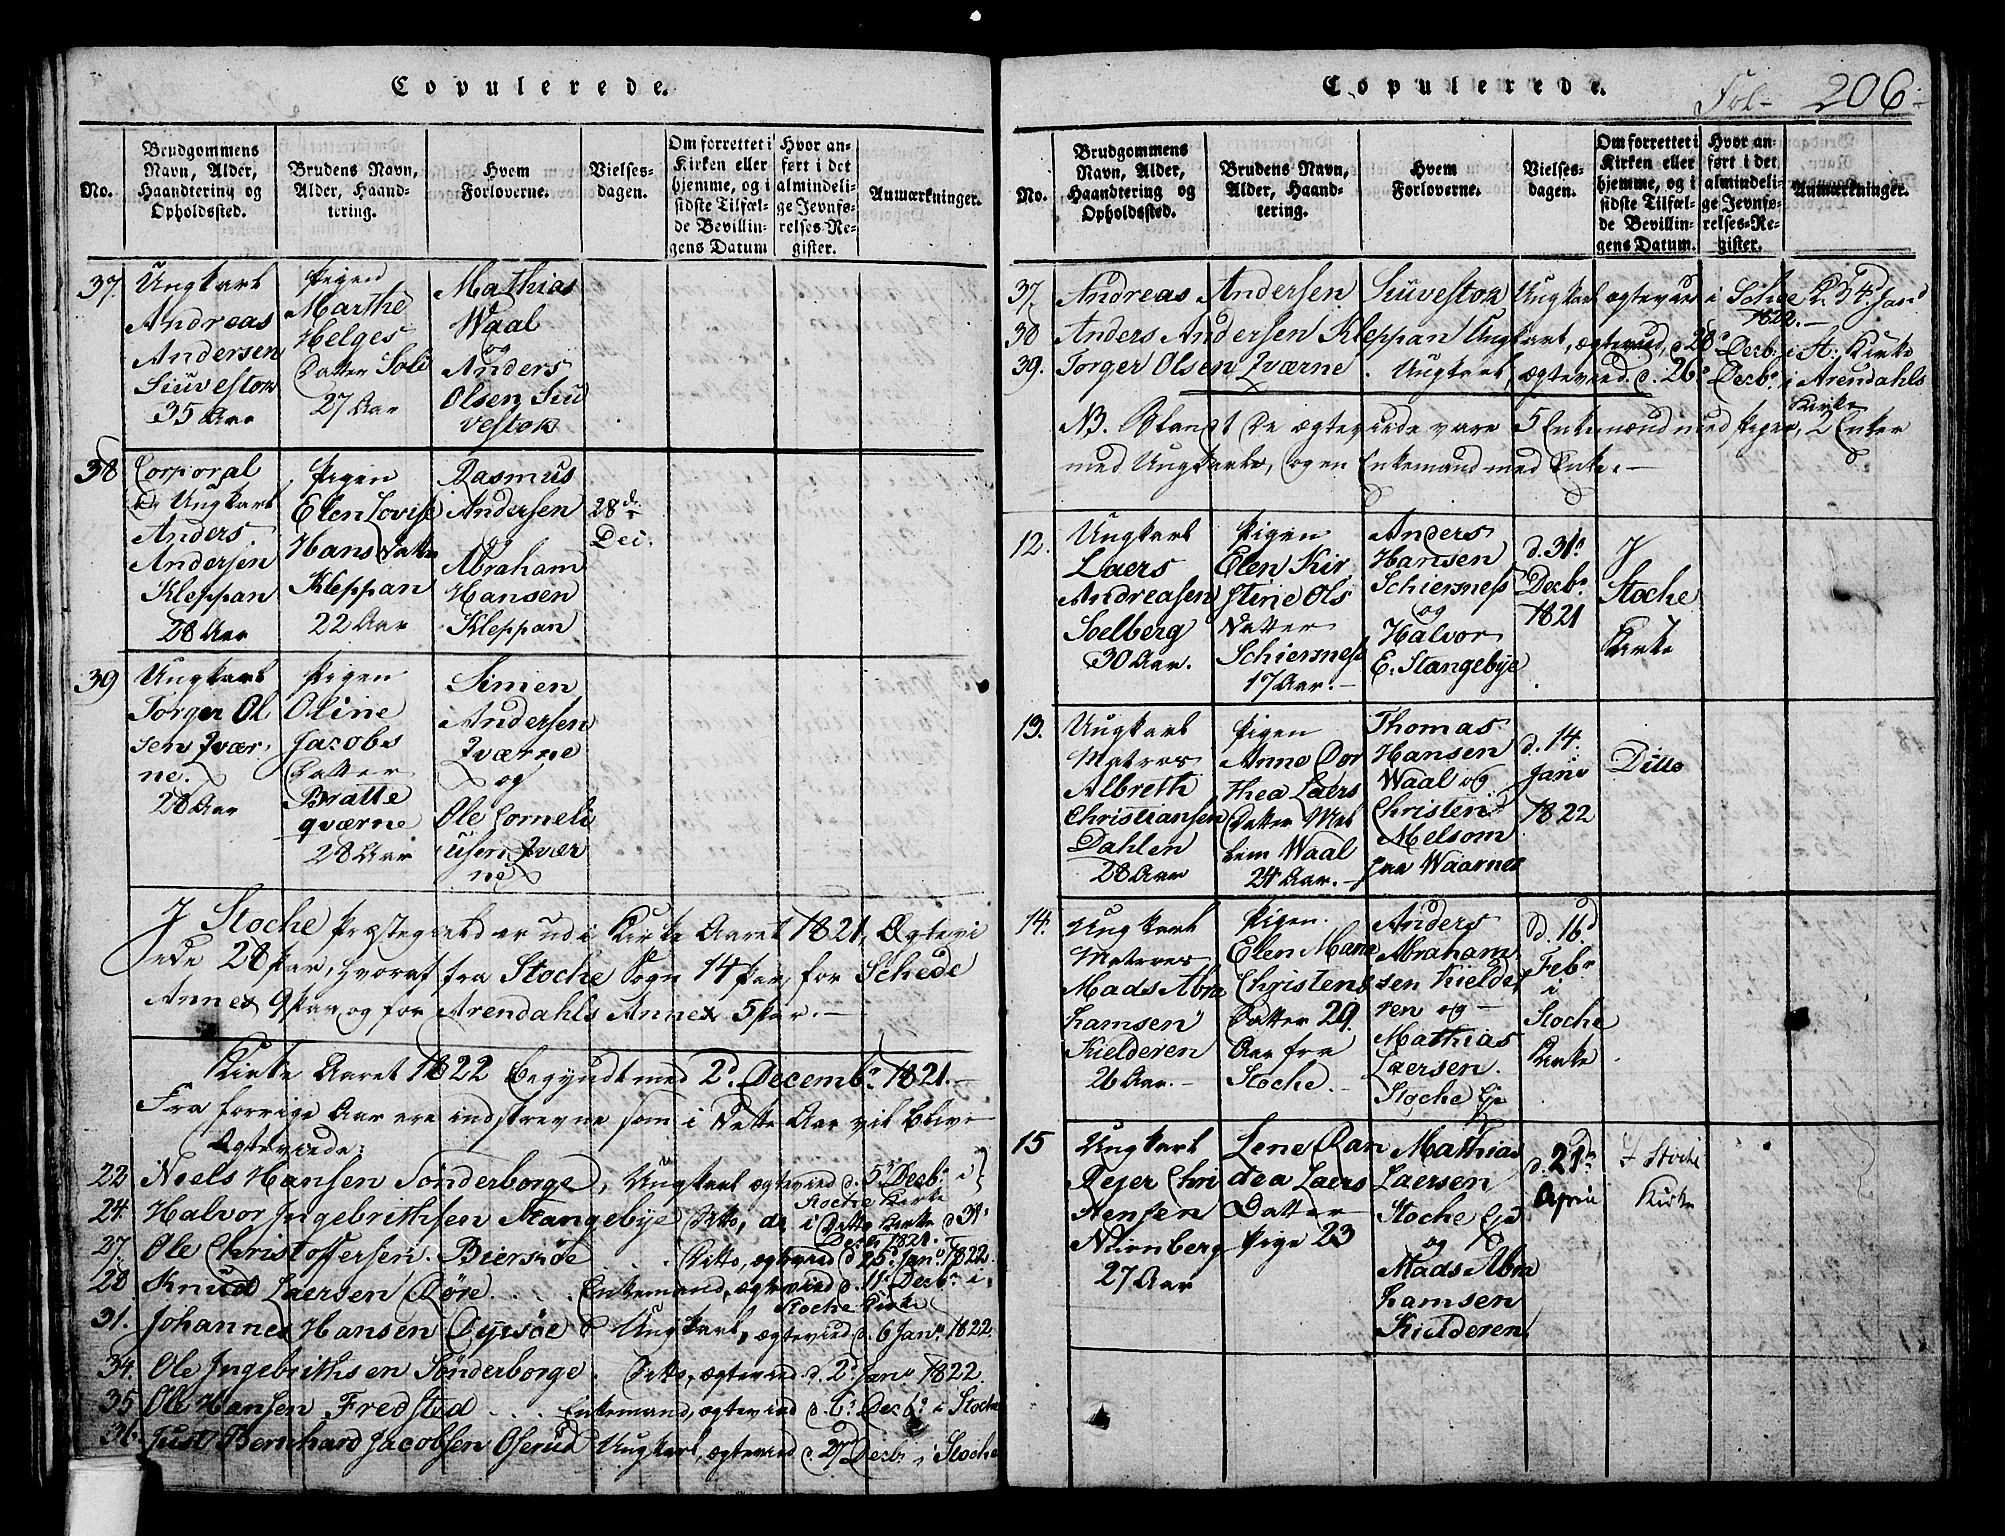 Copulerede.
No.
Brudgommens
Navn, Alder,
Haandtering og
Opholdssted.
Brudens Navn,
Alder, Haand-
tering.
Hvem
Forloverne.
Vielses-
dagen.
Om forrettet i
Kirken eller
hjemme, og i
sidste Tilfæl-
de Bevillin-
gens Datum
Hvor an-
ført i det
almindeli-
ge Jevnfø-
relses-Re-
gister.
Anmærkninger.
37.
Ungkarl
Andreas
Andersen
Siuvestok
35 Aar
Pigen
Marthe
Helges
Datter Soli
27 Aar
Mathias
Waal
og
Anders
Olsen Siu
vestok
38
Corporal
Ungkarl
Anders
Andersen
Kleppan
28 Aar
Pigen
Elen Lovise
Hans Datter
Kleppan
22 Aar
Rasmus
Andersen
og
Abraham
Hansen
Kleppan
28d
Dec.
39
Ungkarl
Torger Ol
sen Qvær
ne.
28 Aar
Pigen
Oline
Jacobs
Datter
Bratte
qværne
28 Aar
Simen
Andersen
Qværne
og
Ole Corneli
usen Qvær
ne
I Stoche Præstegield er udi Kirke Aaret 1821, Ægtevi
ede 28 Par, hvoraf fra Stoche Sogn 14 Par, for Schede
Annex 9 Par og for Arendahls Annex 5 Par.-
Kirke Aaret 1822 begyndt med 2d Decembr 1821.-
Fra forrige Aar ere indskrevne som i Dette Aar vil blive
Ægteviede:
22. Niels Hansen Sönderborge, Ungkarl ægteviid d. 5 Decbr i
Stoche Kirke
24. Halvor Ingebrithsen Stangebÿe Ditto, do i Ditto Kirke d 31
Decbr 1821.
27. Ole Christoffersen Biersøe Ditto, ægteviid d 25 Janu 1822.
28 Knud Laersen Røre . . . . Enkemand, ægteviid d. 11 Decbr i
Stoche Kirke
31. Johannes Hansen Dyrsöe Ungkarl, ægteviid d. 6 Janu 1822.
34. Ole Ingebrithsen Sönderborge. Ditto, ægteviid d. 2d Janu 1822.
35 Ole Hansen Fredsted . . . Enkemand, ægteviid d. 6 Decbr i Stoche
36. Just Bernhard Jacobsen Oserüd Ungkarl, ægteviid d. 27 Decbr i Stoche
Copulerede.
Fol- 206.
No.
Brudgommens
Navn, Alder,
Haandtering og
Opholdssted.
Brudens Navn,
Alder, Haand-
tering.
Hvem
Forloverne.
Vielses-
dagen.
Om forrettet i
Kirken eller
hjemme, og i
sidste Tilfæl-
de Bevillin-
gens Datum.
Hvor an-
ført i det
almindeli-
ge Jevnfø-
relses-Re-
gister.
Anmærkninger.
37. Andreas Andersen Siuvestok Ungkarl ægteviet i Schee K. 4 Janu
1822.-
38 Anders Andersen Kleppan Ungkarl, ægteviid, d 28 Decbr i A: Kirke
39. Torger Olsen Qværne. Ungkarl, ægteviid. d. 26 Decbr i Arendahls
Kirke
NB. Blandt de ægteviede vare 5 Enkemænd med Piger, 2 Enker
med Ungkarle, og en Enkemand med Enke.-
12.
Ungkarl
Laers
Andreasen
Soelberg
30 Aar.
Pigen
Elen Kir
stine Ols
Datter
Schiersness
17 Aar.-
Anders
Hansen
Schiersness
og
Halvor
E. Stangebÿe
d. 31
Decbr
1821
I
Stoche
Kirke
13.
Ungkarl
Matros
Albreth
Christiansen
Dahlen
28 Aar
Pigen
Anne Dor
thea Laers
Datter Mel
lem Waal
24 Aar.-
Thomas
Hansen
Waal og
Christen
Melsom
fra Waarnes
d. 14
Janu
1822
Ditto
14.
Ungkarl
Matros
Mads Abra
hamsen
Kielderen
26 Aar.-
Pigen.
Elen Marie
Christens
Datter 29.
Aar fra
Stoche.-
Anders
Abraham
sen Kielde
ren og
Mathias
Laersen
Stoche Eje
d. 16d
Febr
i
Stoche
Kirke
15
Ungkarl
Rejer Chri
stensen
Nürnberg
27 Aar
Lene Ran
dea Laers
Datter
Pige 23
Mathias
Laersen
Stoche Eje
og
Mads Abra
hamsen
Kielderen
d. 21
April
I Stoche
Kirke